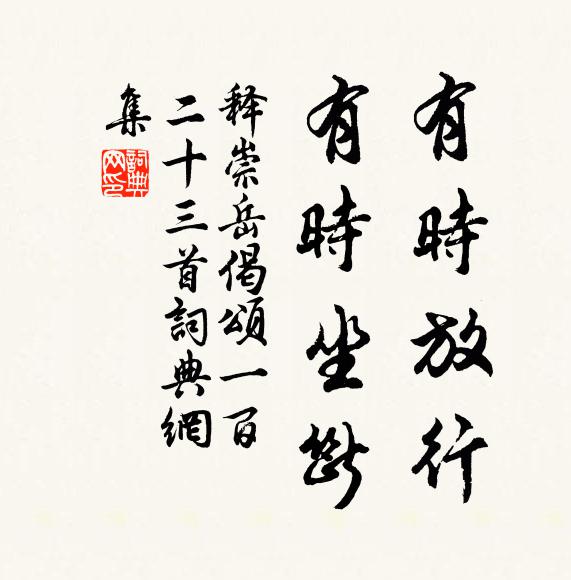 有時放行
有時坐斷
释崇岳偈頌一百
二十三首詞典網
集
詞典网印